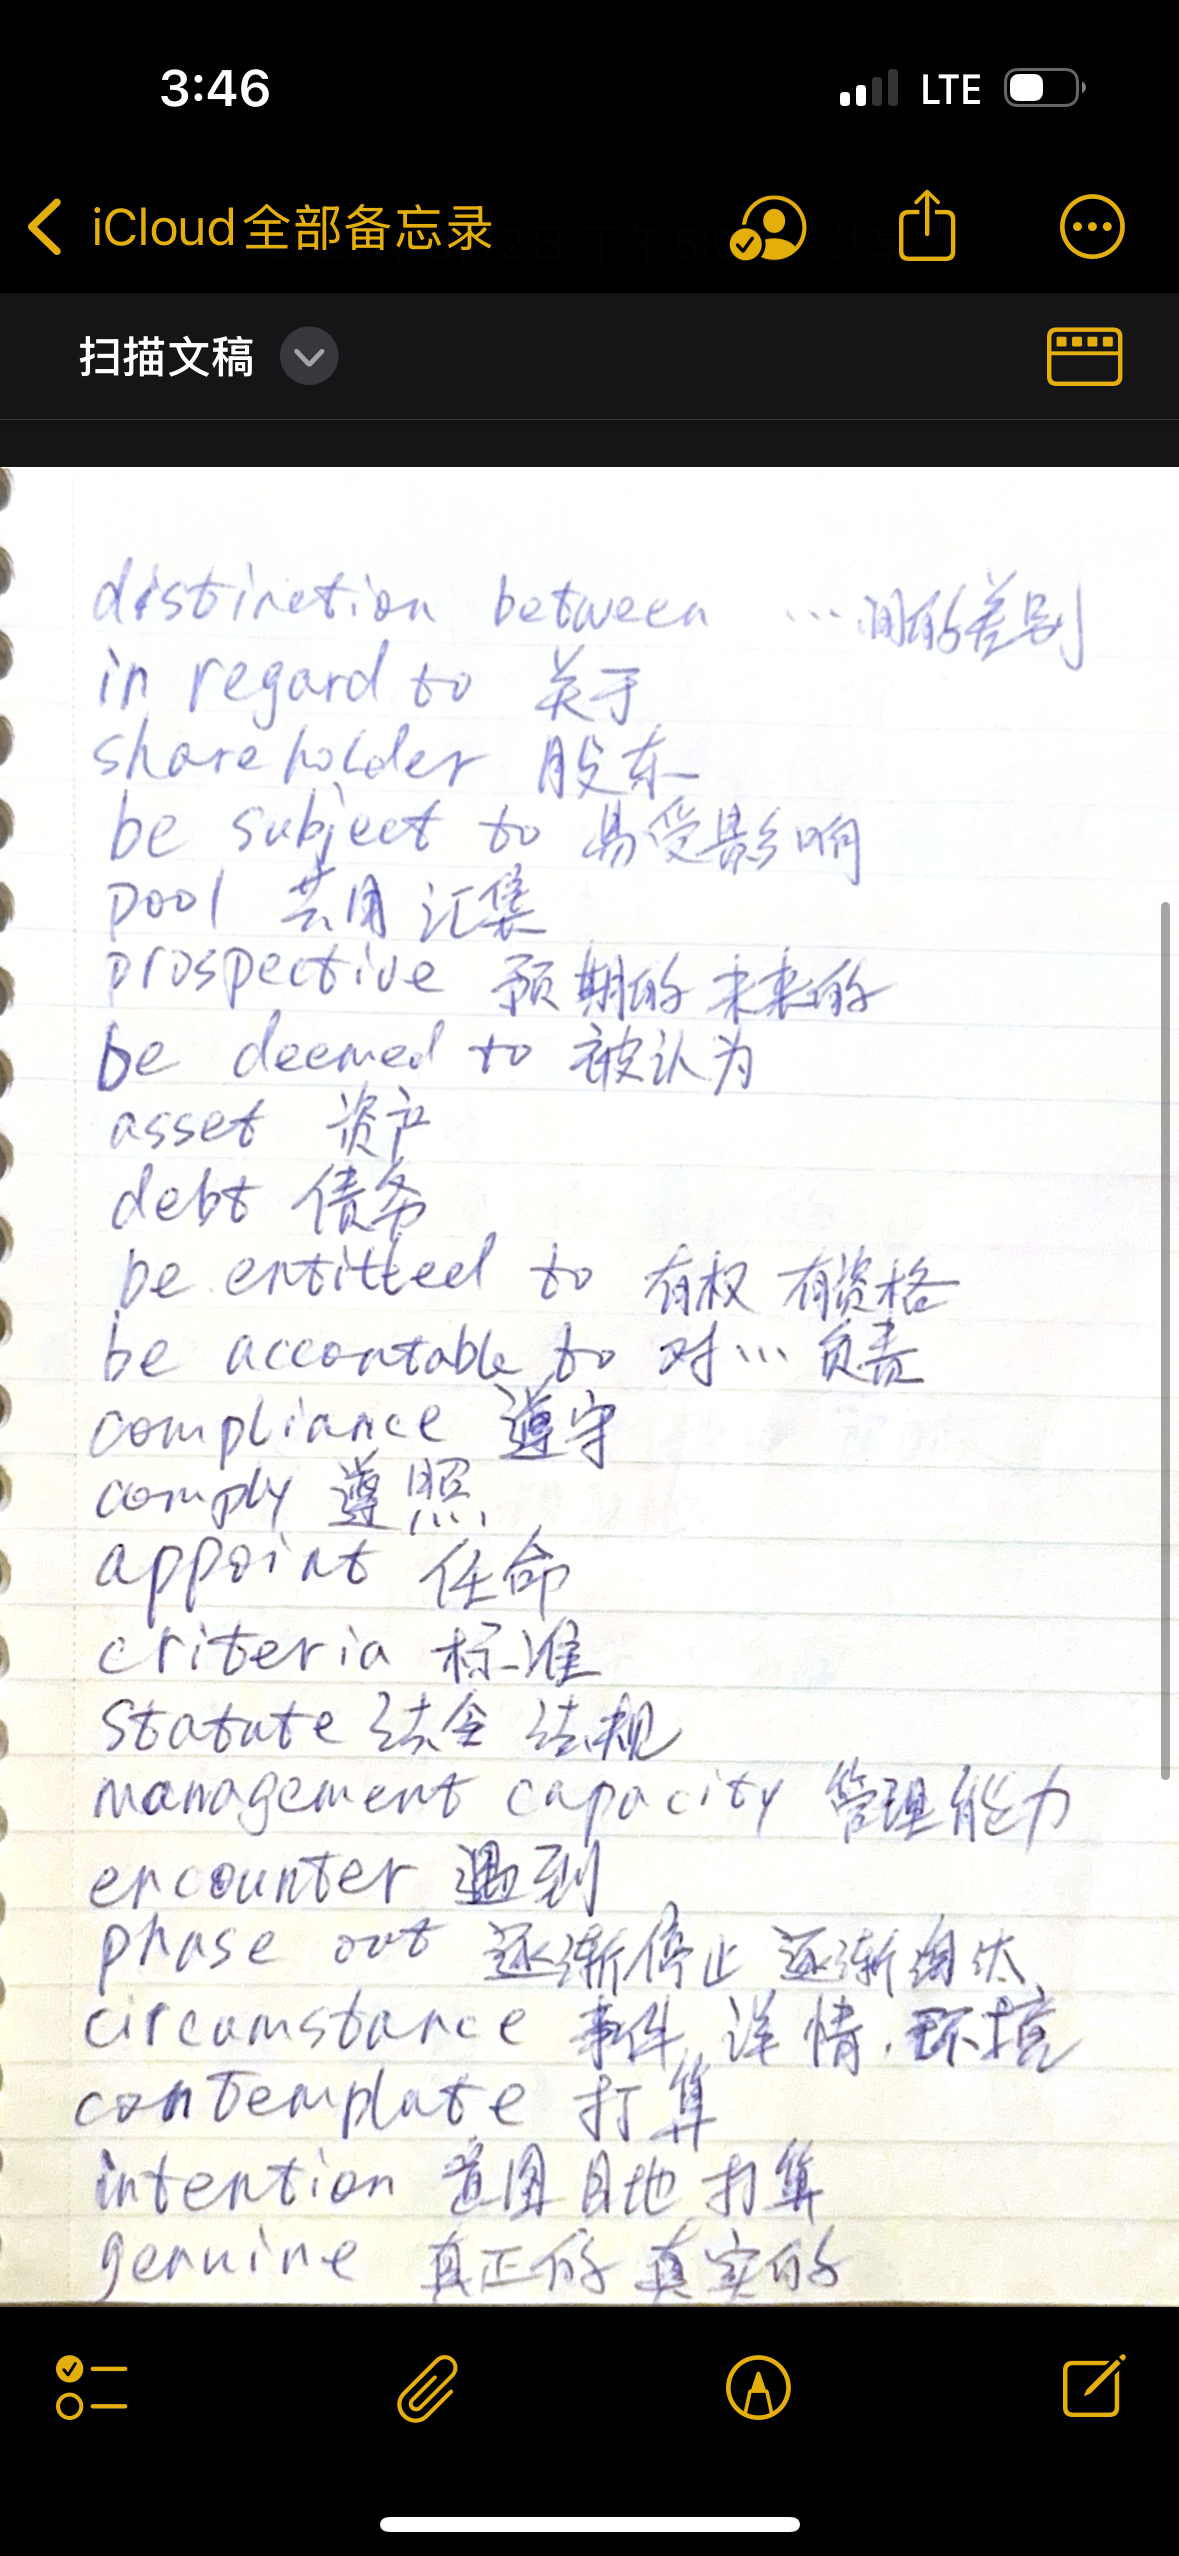 3:46 LTE
iCloud全部备忘录
扫描文稿
distinction between …间的差别
in regard to 关于
shareholder 股东
be subject to 易受影响
pool 共用 汇集
prospective 预期的 未来的
be deemed to 被认为
asset 资产
debt 债务
be entitled to 有权 有资格
be accontable to 对…负责
compliance 遵守
comply 遵照
appoint 任命
criteria 标准
Statute 法令 法规
management capacity 管理能力
encounter 遇到
phase out 逐渐停止 逐渐淘汰
circumstance 事件 详情.环境
contemplate 打算
intention 意图 目地 打算
genuine 真正的 真实的